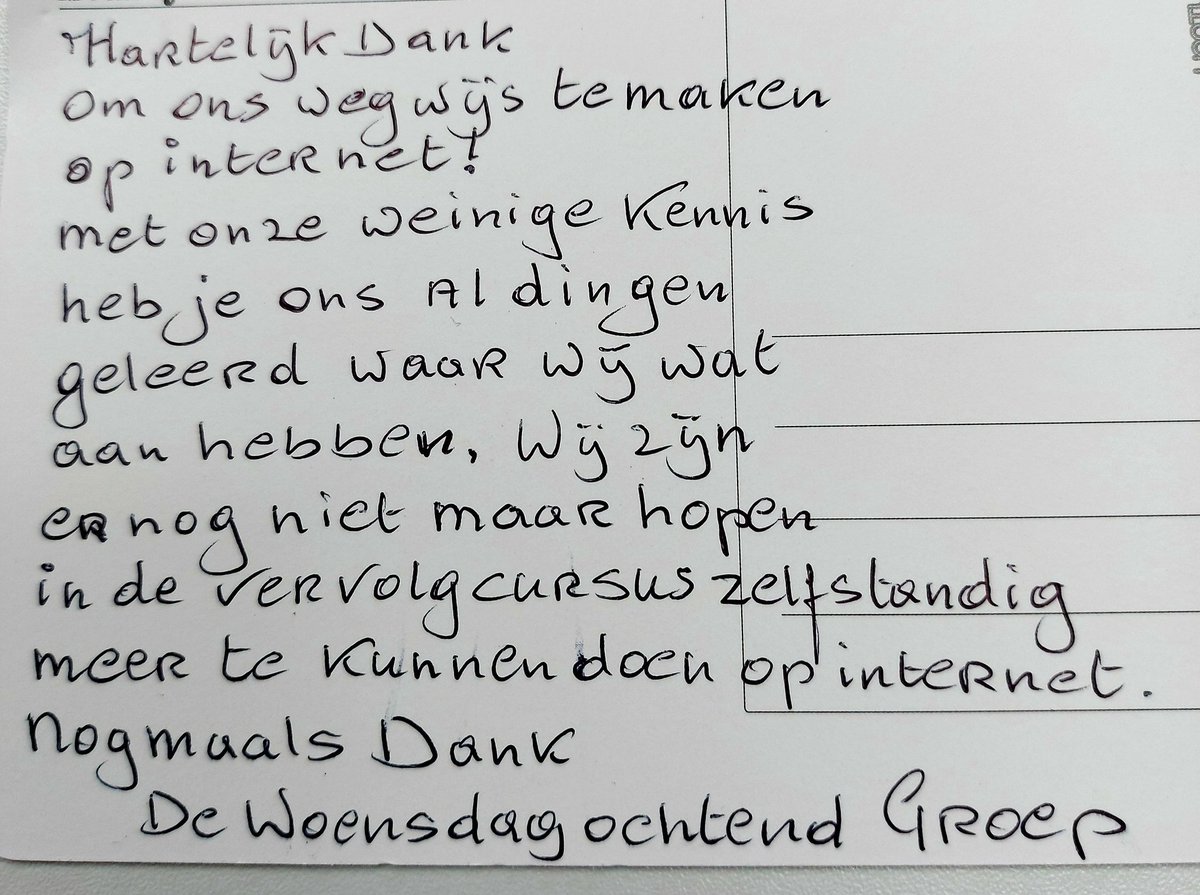 Hartelijk Dank
om ons weg wijs te maken
op internet!
met onze weinige kennis
heb je ons Al dingen
geleerd waar wij wat
aan hebben. Wij zijn
er nog niet maar hopen
in de vervolg cursus zelfstandig
meer te kunnen doen op internet.
Nogmaals Dank
De Woensdag ochtend Groep